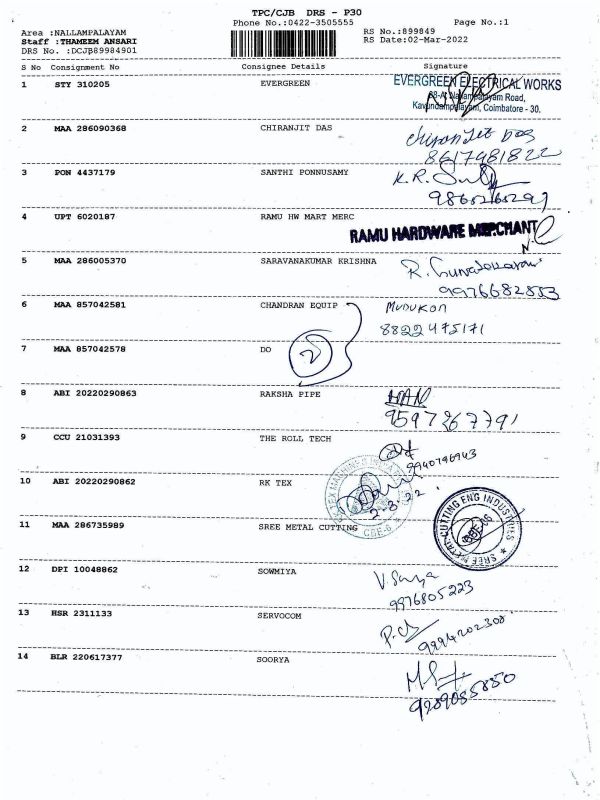 TPC/CJB DRS - P30
Phone No.:0422-3505555 Page No.:1
Area :NALLAMPALAYAM RS No.:899849
Staff :THAMEEM ANSARI RS Date:02-Mar-2022
DRS No. :DCJB89984901
S No Consignment No Consignee Details Signature
1 STY 310205 EVERGREEN EVERGREEN ELECTRICAL WORKS
Nallampalayam Road,
Kavundampalayam, Coimbatore - 30.
2 MAA 286090368 CHIRANJIT DAS Chiranjit Das
8617481822
3 PON 4437179 SANTHI PONNUSAMY K.R.
4 UPT 6020187 RAMU HW MART MERC
RAMU HARDWARE MERCHANT
5 MAA 286005370 SARAVANAKUMAR KRISHNA
9976682853
6 MAA 857042581 CHANDRAN EQUIP MUDUKON
8822475171
7 MAA 857042578 DO
8 ABI 20220290863 RAKSHA PIPE
9597367791
9 CCU 21031393 THE ROLL TECH
9940796943
10 ABI 20220290862 RK TEX
2-3-22
CBE-6
11 MAA 286735989 SREE METAL CUTTING SREE METAL CUTTING ENG INDUSTRIES
CBE-06
12 DPI 10048862 SOWMIYA
9976805223
13 HSR 2311133 SERVOCOM
9994202308
14 BLR 220617377 SOORYA
9289085850